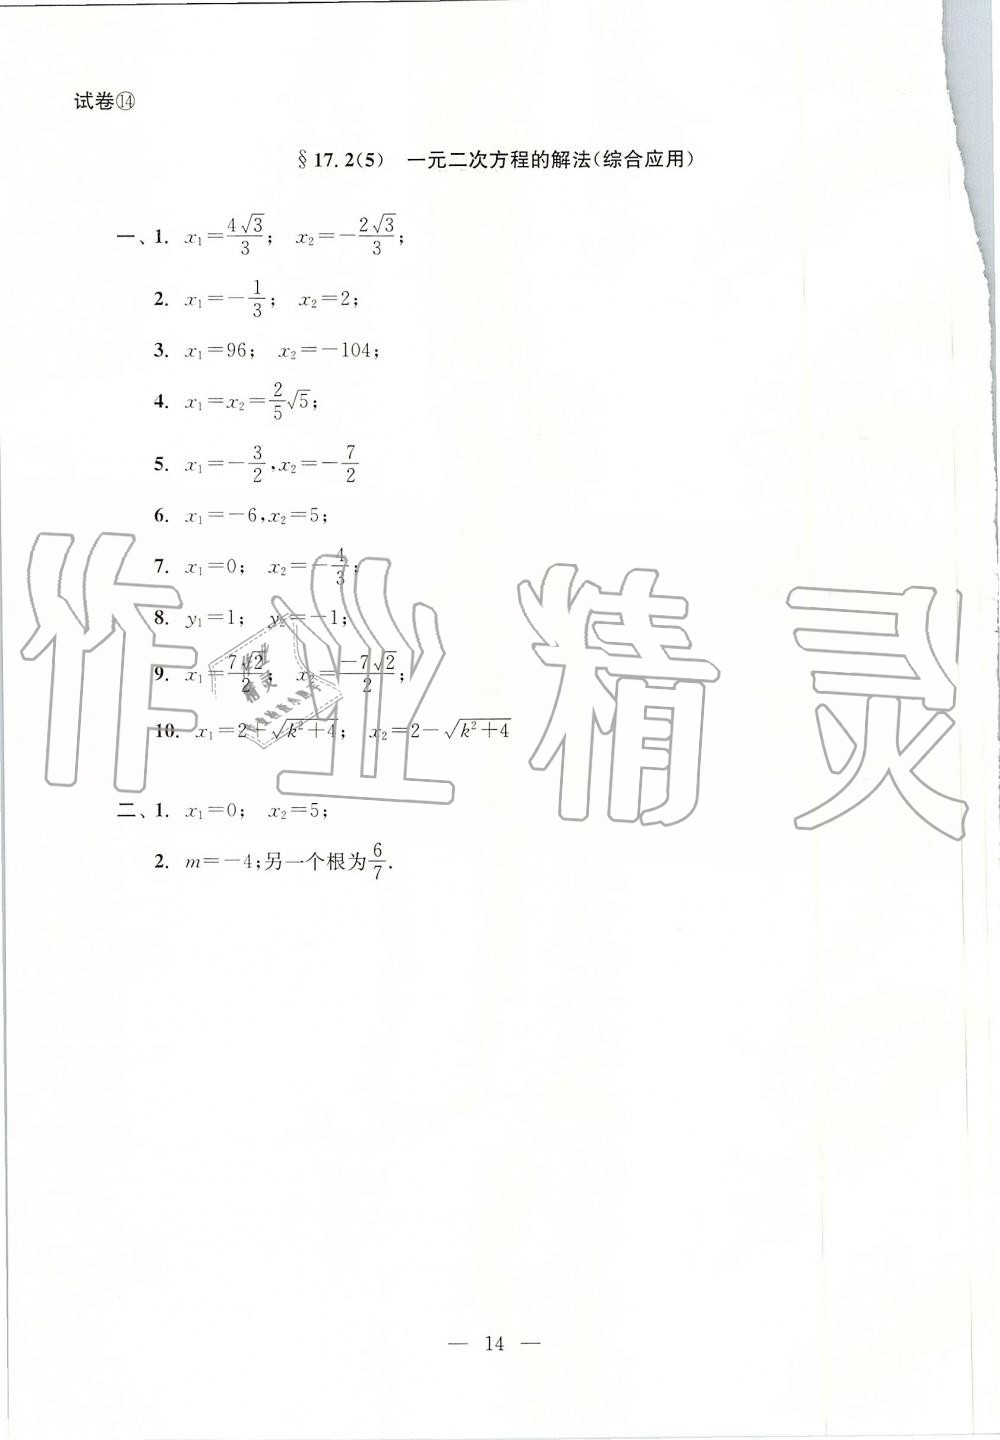 试卷⑭
§17.2(5) 一元二次方程的解法(综合应用)
一、1. x₁=4√3/3; x₂=-2√3/3;
2. x₁=-1/3; x₂=2;
3. x₁=96; x₂=-104;
4. x₁=x₂=2/5√5;
5. x₁=-3/2,x₂=-7/2
6. x₁=-6,x₂=5;
7. x₁=0; x₂=-4/3;
8. y₁=1; y₂=-1;
9. x₁=7√2/2; x₂=-7√2/2;
10. x₁=2+√(k²+4); x₂=2-√(k²+4)
二、1. x₁=0; x₂=5;
2. m=-4;另一个根为6/7.
作业精灵
作业
精灵
— 14 —